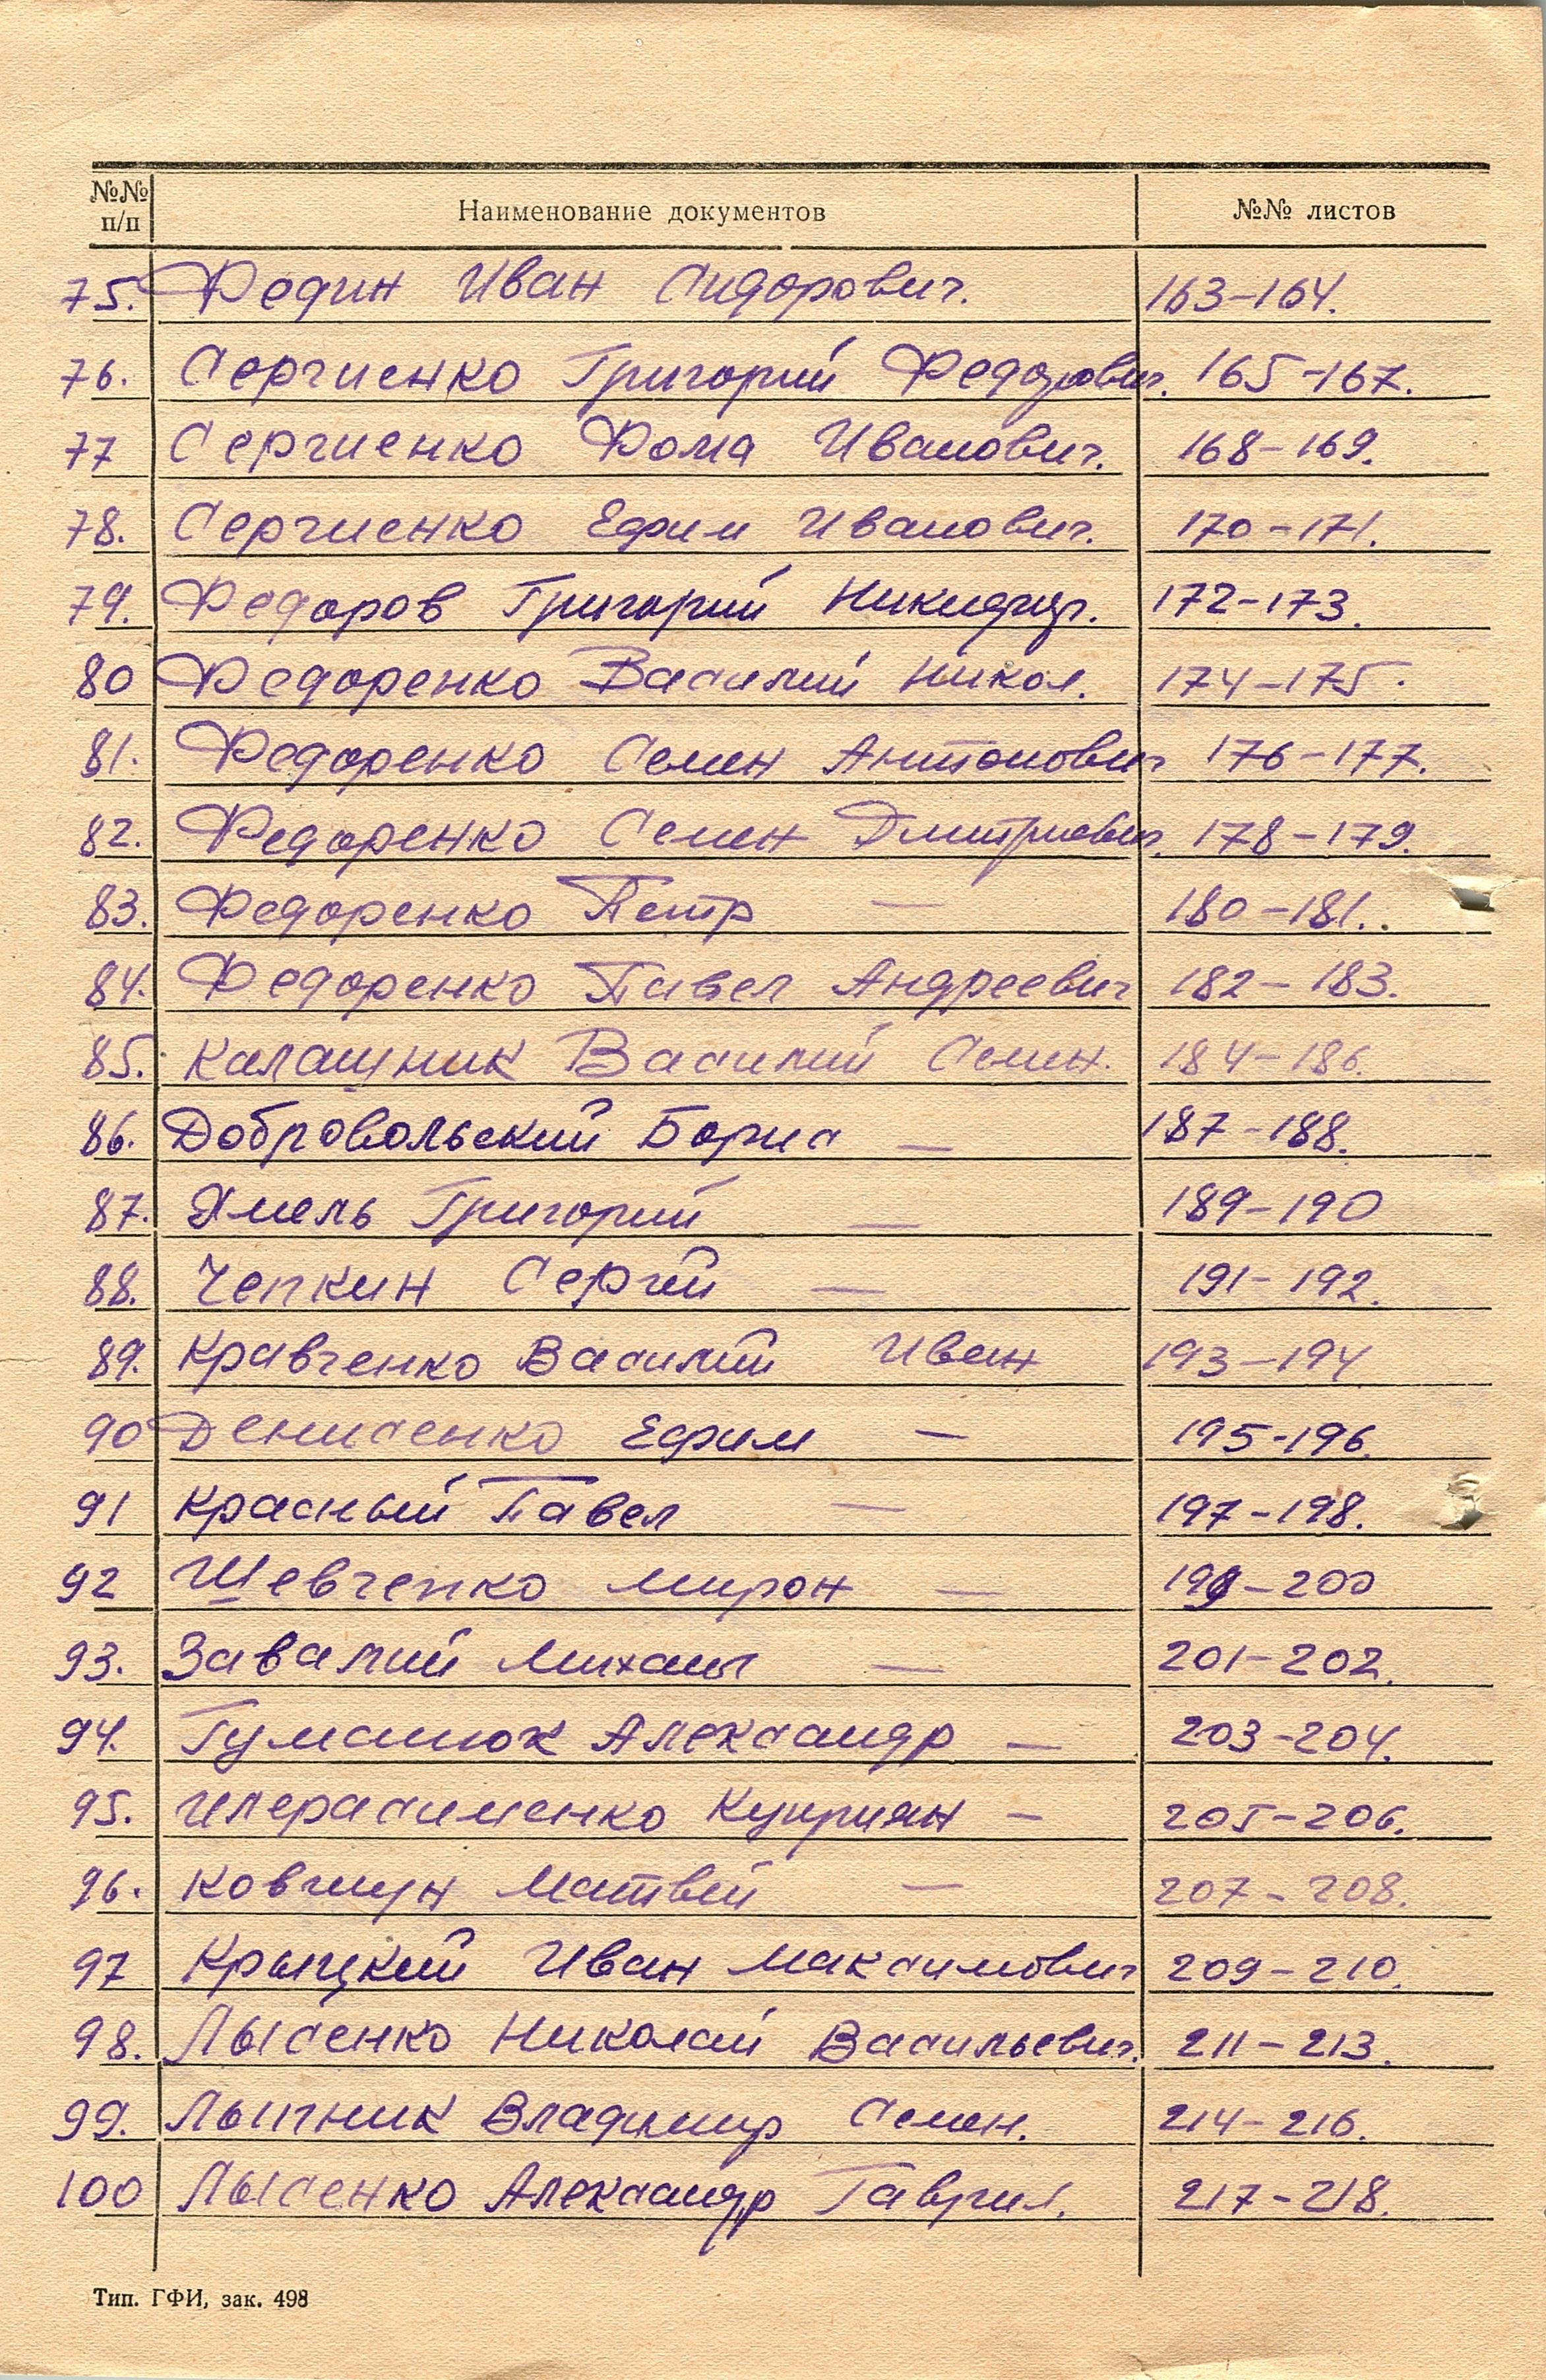 №№ п/п Наименование документов №№ листов
75. Федин Иван Сидорович. 163-164.
76. Сергиенко Григорий Федорович. 165-167.
77 Сергиенко Фома Иванович. 168-169.
78. Сергиенко Ефим Иванович. 170-171.
79. Федоров Григорий 172-173.
80 Федоренко Василий Никол. 174-175.
81. Федоренко Семен Антонович 176-177.
82. Федоренко Семен Дмитриевич. 178-179.
83. Федоренко Петр — 180-181..
84. Федоренко Павел Андреевич 182-183.
85. Калашник Василий Семен. 184-186.
86. Добровольский Борис — 187-188.
87. Хмель Григорий — 189-190
88. Чепкин Сергей — 191-192.
89. Кравченко Василий Иван 193-194
90 Денисенко Ефим — 195-196.
91 Красный Павел — 197-198.
92 Шевченко Мирон — 199-200
93. Завалий Михаил — 201-202.
94. Гуманюк Александр — 203-204.
95. Куприян — 205-206.
96. Ковтун Матвей — 207-208.
97 Крыцкий Иван Максимович 209-210.
98. Лысенко Николай Васильевич. 211-213.
99. Владимир Семен. 214-216.
100 Лысенко Александр Гаврил. 217-218.
Тип. ГФИ, зак. 498